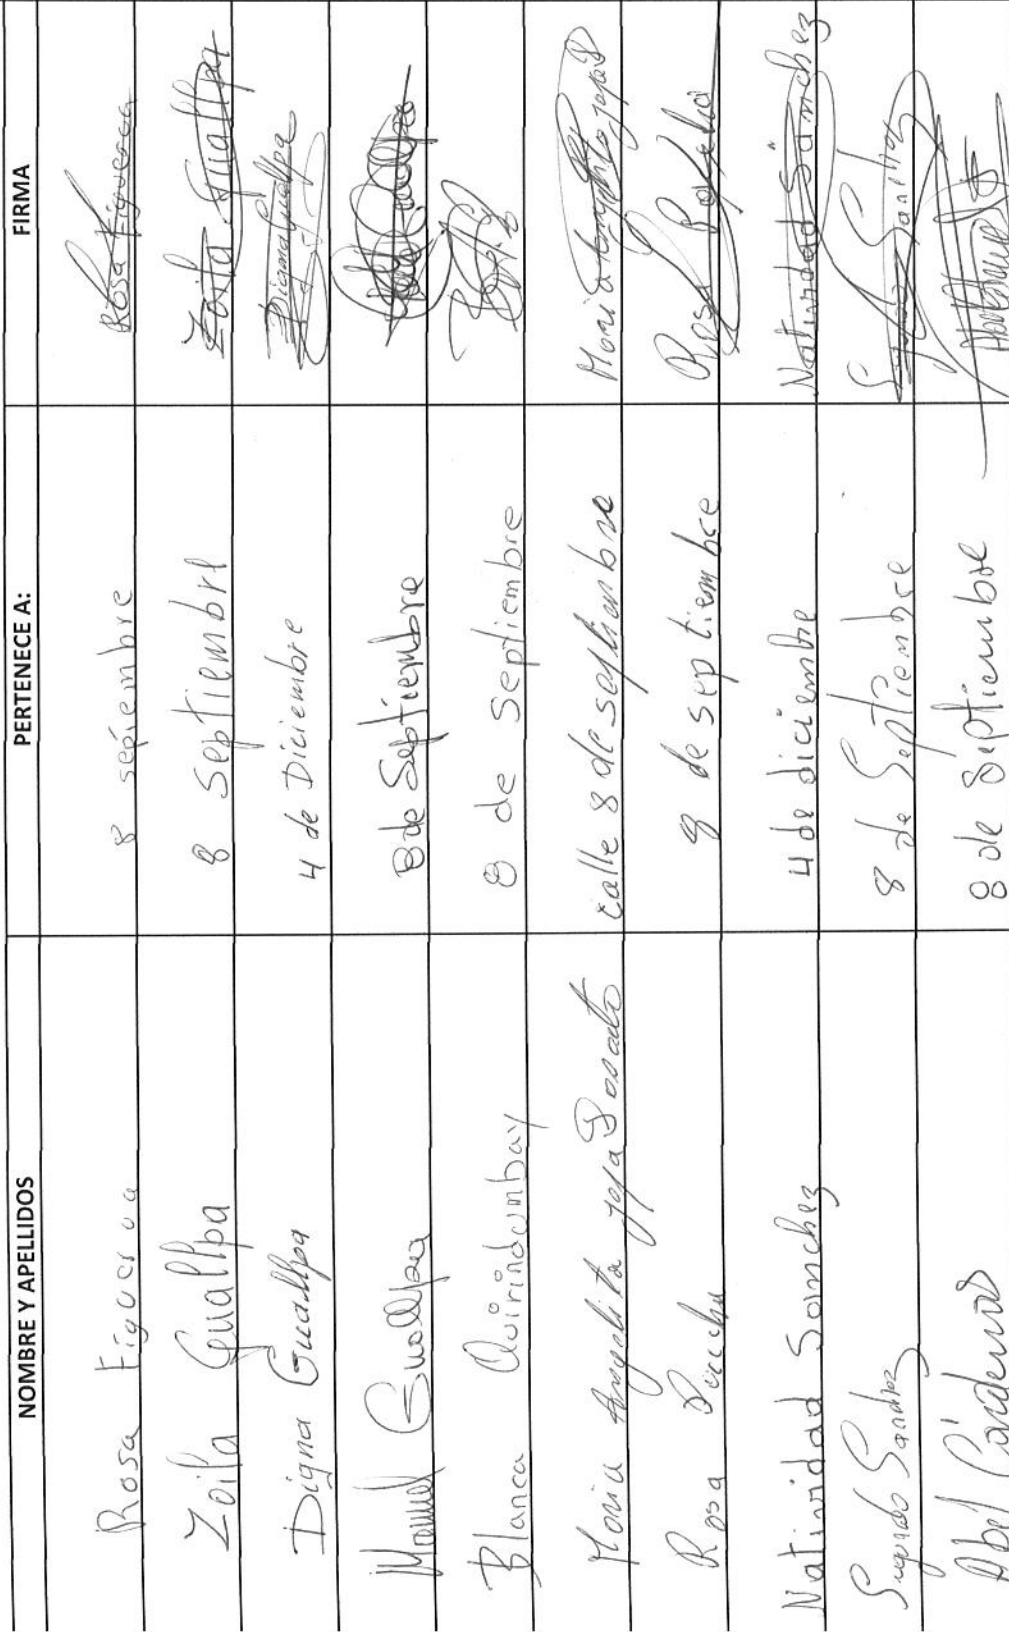 NOMBRE Y APELLIDOS PERTENECE A: FIRMA
Rosa Figueroa 8 sepiembre Rosa Figueroa
Zoila Guallpa 8 Septiembre Zoila Guallpa
Digna Guallpa 4 de Diciembre Digna Guallpa
Manuel Guallpa 8 de Septiembre
Blanca Quirindumbay 8 de Septiembre
Maria Angelita yopa calle 8 de septiembre Maria
Rosa 8 de septiembre Rosa
Natividad Sanchez 4 de diciembre Natividad Sanchez
Segundo Sanchez 8 de Septiembre
Abel Cárdenas 8 de Septiembre